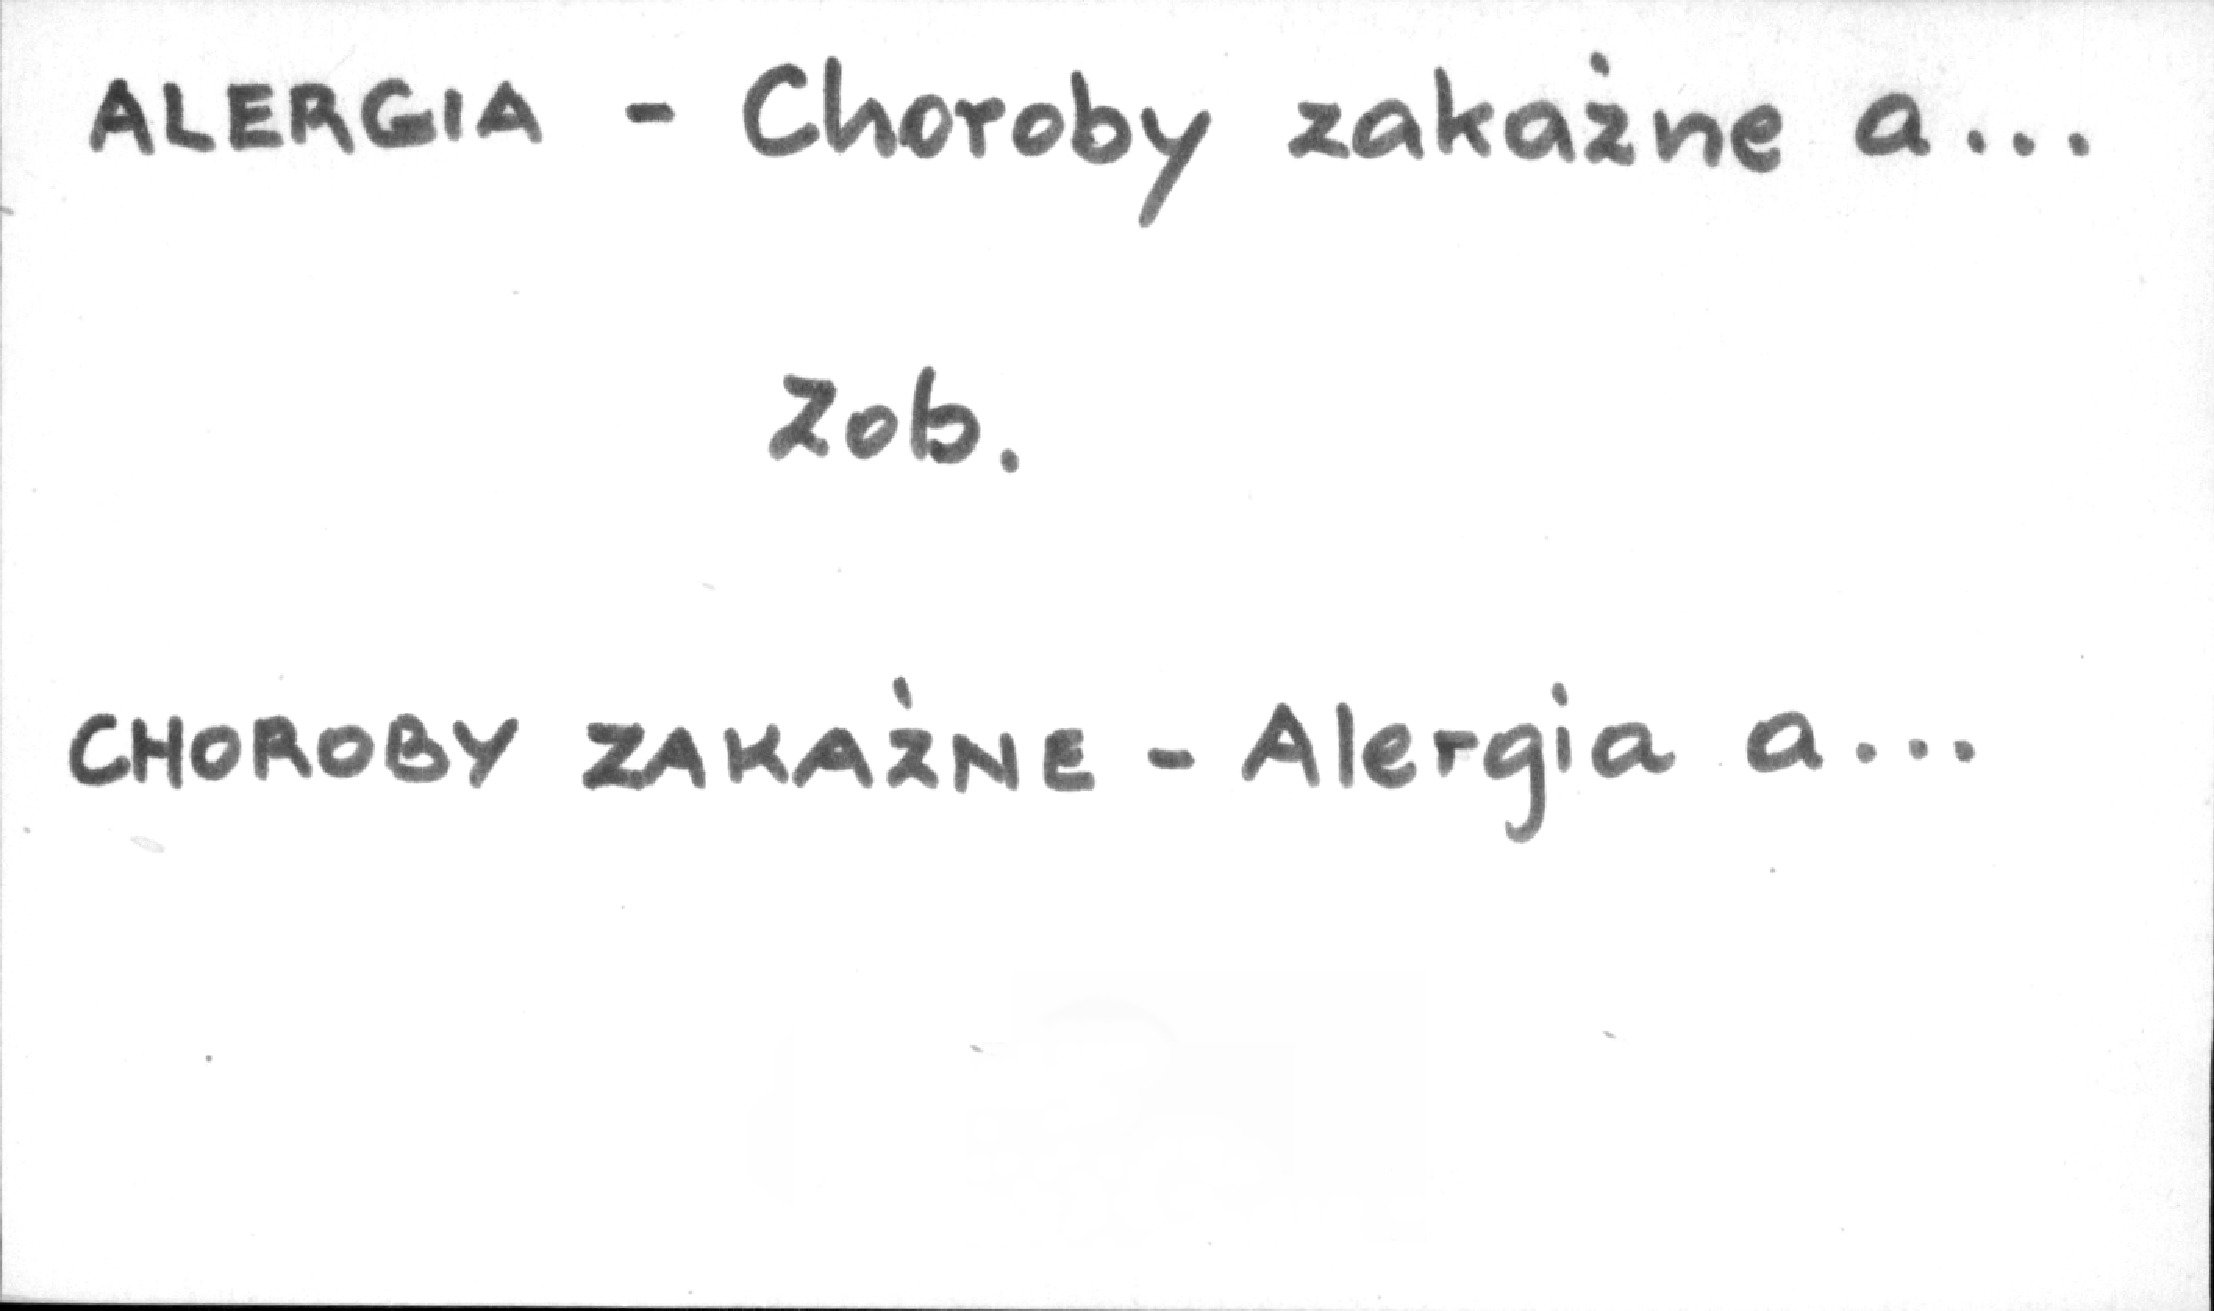 ALERGIA - Choroby zakaźne a...
Zob.
CHOROBY ZAKAŹNE - Alergia a...